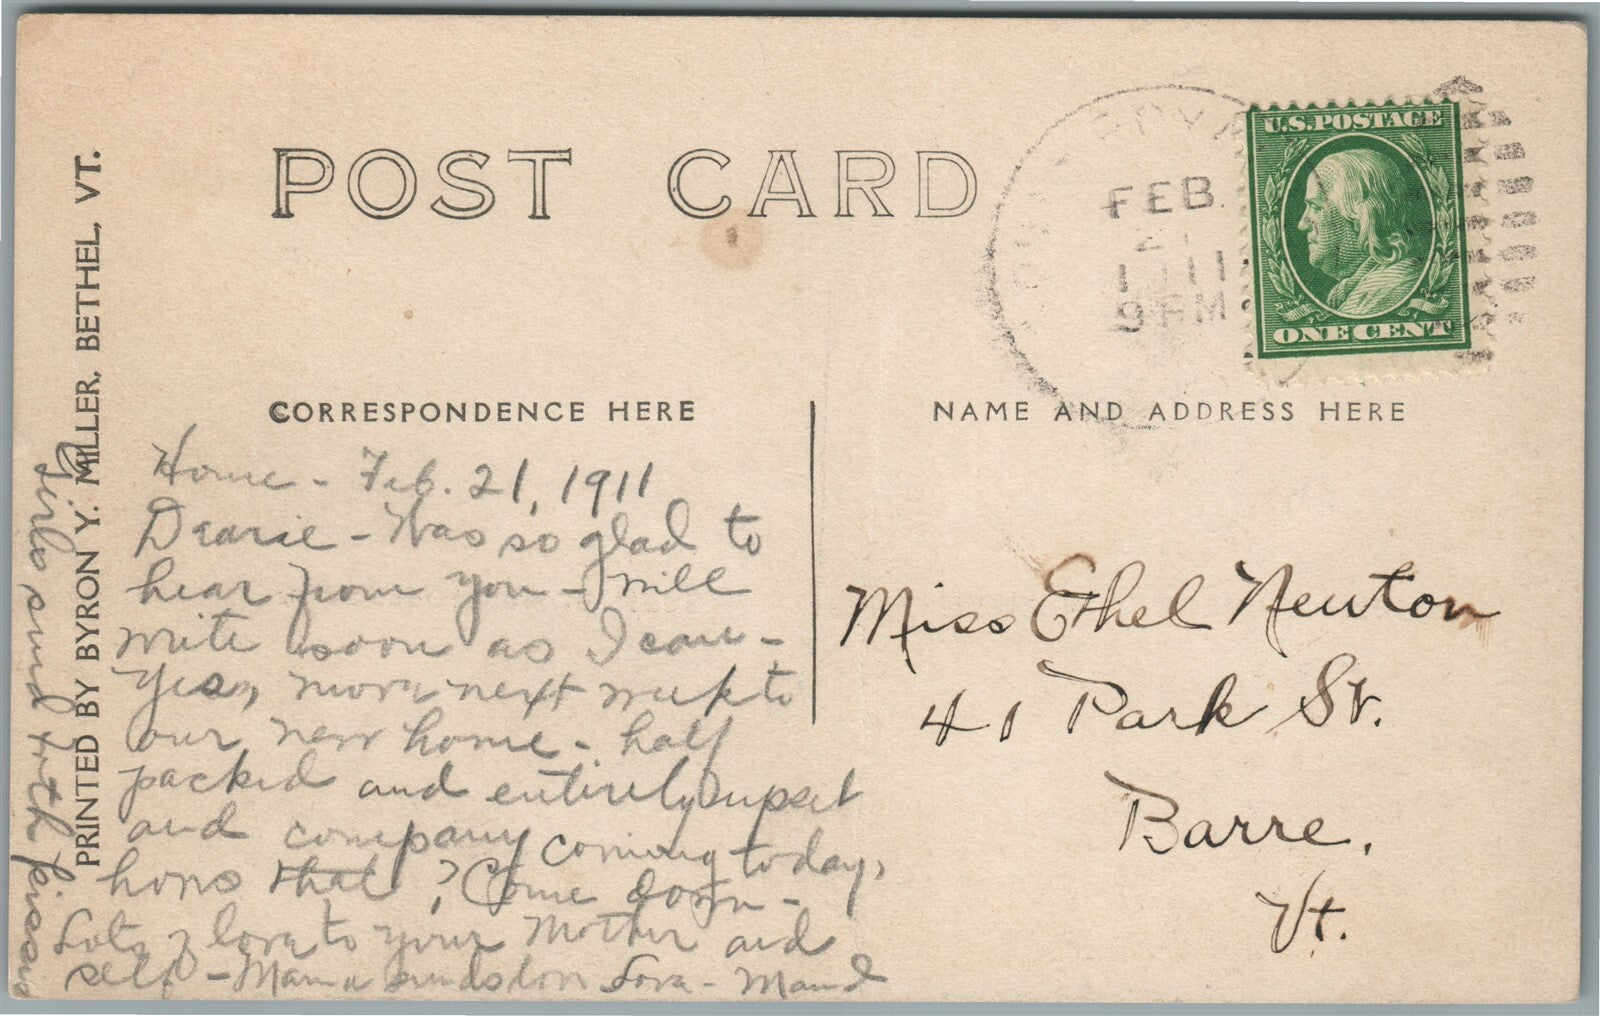 POST CARD
FEB
21
1911
9 PM
U.S.POSTAGE
ONE CENT
CORRESPONDENCE HERE
NAME AND ADDRESS HERE
Home - Feb. 21, 1911
Dearie - Was so glad to
hear from you - Will
write soon as I can -
Yes, move next week to
our new home - half
packed and entirely upset
and company coming today,
hows that? Come down -
Lots of love to your Mother and
self - Mama sends love Lora - Maud
Girls send both kisses
Miss Ethel Newton
41 Park St.
Barre,
Vt.
PRINTED BY BYRON Y. MILLER, BETHEL, VT.